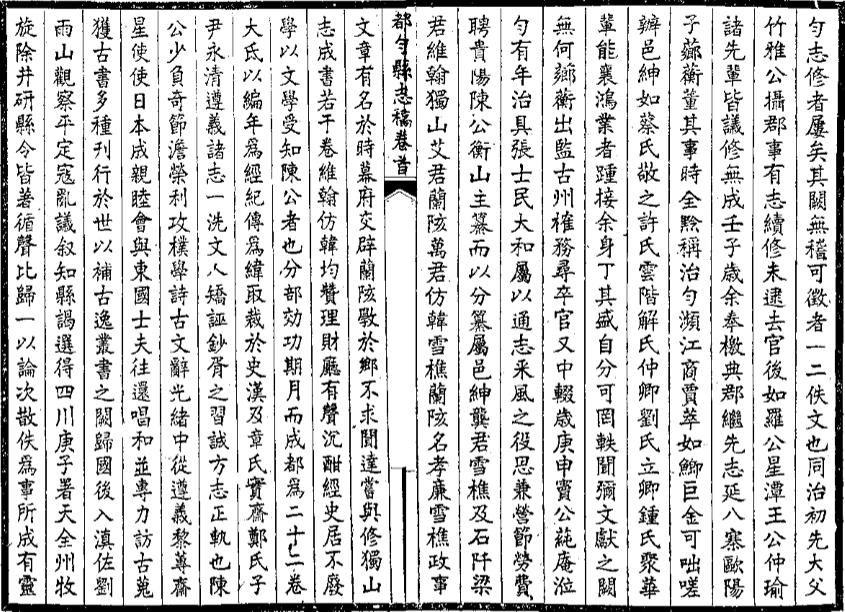 勻志修者屢矣其闕無稽可徵者一二佚文也同治初先大父
竹雅公攝郡事有志續修未逮去官後如羅公星潭王公仲瑜
諸先輩皆議修無成壬子歲余奉檄典郡繼先志延八寨歐陽
子薌蘅董其事時全黔稱治勻瀕江商賈萃如鯽巨金可咄嗟
辦邑紳如蔡氏敬之許氏雲階解氏仲卿劉氏立卿鍾氏聚華
輩能襄鴻業者踵接余身丁其盛自分可罔軼聞彌文獻之闕
無何薌蘅出監古州榷務尋卒官又中輟歲庚申竇公蒓庵涖
勻有年治具張士民大和屬以通志采風之役思兼營節勞費
聘貴陽陳公衡山主纂而以分纂屬邑紳龔君雪樵及石阡梁
君維翰獨山艾君蘭陔萬君仿韓雪樵蘭陔名孝廉雪樵政事
都勻縣志稿卷首
文章有名於時幕府交辟蘭陔斅於鄉不求聞達嘗與修獨山
志成書若干卷維翰仿韓均贊理財廳有聲沉酣經史居不廢
學以文學受知陳公者也分部効功期月而成都爲二十二卷
大氐以編年爲經紀傳爲緯取裁於史漢及章氏實齋鄭氏子
尹永清遵義諸志一洗文人矯誣鈔胥之習誠方志正軌也陳
公少負奇節澹榮利攻樸學詩古文辭光緒中從遵義黎蓴齋
星使使日本成親睦會與東國士夫往還唱和並專力訪古蒐
獲古書多種刊行於世以補古逸叢書之闕歸國後入滇佐劉
雨山觀察平定寇亂議叙知縣謁選得四川庚子署天全州牧
旋除井研縣令皆著循聲比歸一以論次散佚爲事所成有靈